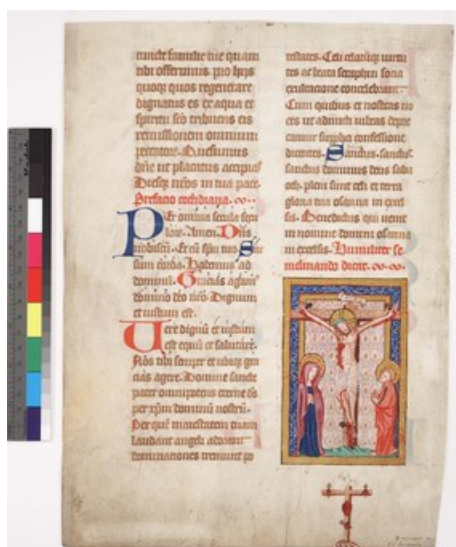 cunctę familie tue quam
tibi offerimus pro hijs
quoq; quos regenerare
dignatus es ex aqua et
spiritu sc̄o tribuens eis
remissionem omnium
peccatorū. Quesumus
dn̄e ut placatus accipias
Diesq; nr̄os in tua pace.
Prefacio cotidiana.
Per omnia secula secu
lorū. Amen. Dn̄s
vobiscū. Et cū spū tuo. Sur
sum corda. Habemus ad
dominū. Gracias agam
domino deo nr̄o. Dignum
et iustum est.
Uere dignū et iustum
est equū et salutare.
Nos tibi semper et ubiq; gra
cias agere. Domine sancte
pater omnipotens eterne ds̄
per xpm̄ dominū nostrū.
Per quē maiestatem tuam
laudant angeli adorant
dominaciones tremunt po
testates. Celi celorūq; virtu
tes ac beata seraphin socia
exultacione concelebrant.
Cum quibus et nostras uo
ces ut admitti iubeas depre
camur supplici confessione
dicentes. Sanctus. sanctus.
sanctus dominus deus saba
oth. pleni sunt celi et terra
gloria tua osanna in excel
sis. Benedictus qui uenit
in nomine domini osanna
in excelsis. Humiliter se
inclinando dicat.